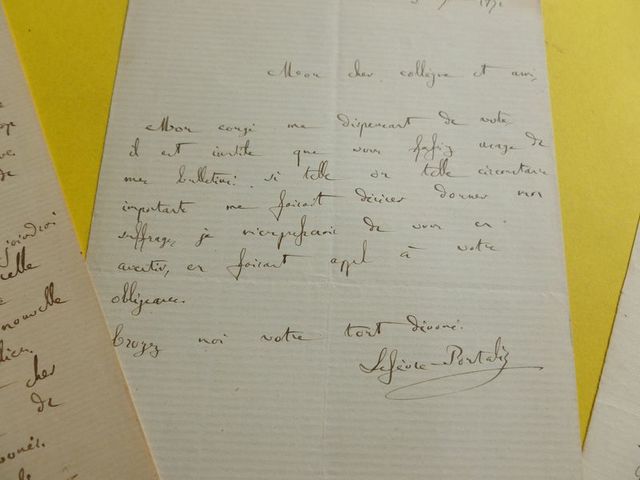 1871
Mon cher collègue et ami,
Mon congé me dispensant de vote
il est inutile que vous fassiez usage de
mes bulletins. si telle ou telle circonstance
importante me faisait désirer donner mon
suffrage, je m'empresserais de vous en
avertir, en faisant appel à votre
obligeance.
Croyez moi votre tout dévoué.
Lefèvre-Portalis
velle
nouvelle
cher
de